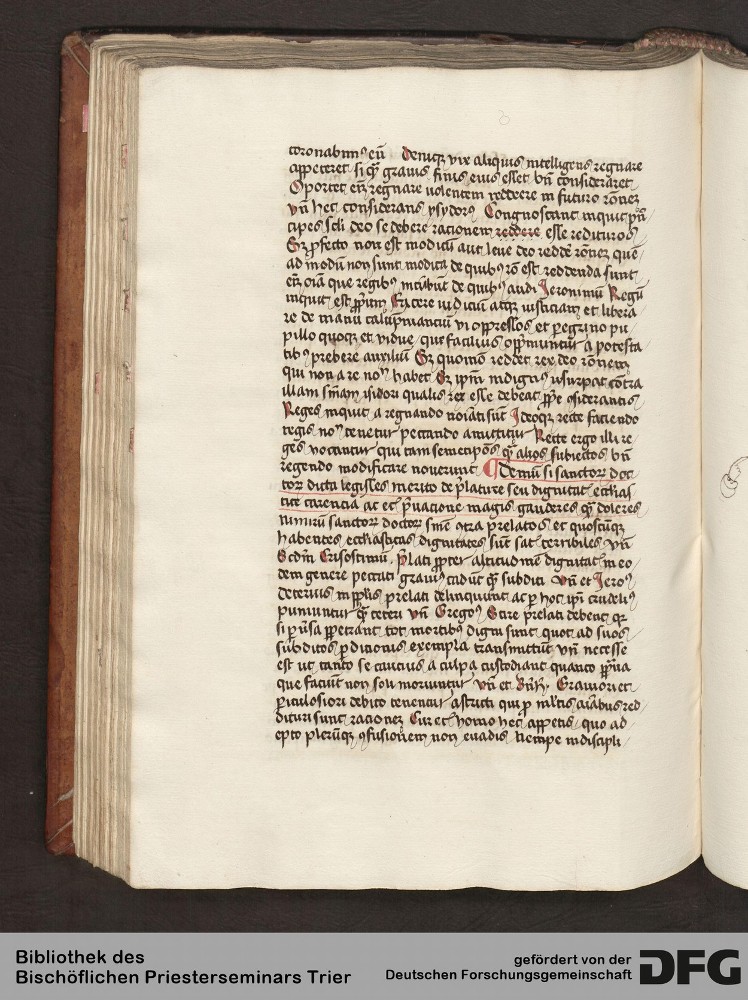 coronabimꝰ eū Deniqꝫ vix aliquis intelligens regnare
appeteret si qꝫ grauis finis eius esset vn̄ consideraret
Oportet em̄ regnare uolentem reddere in futuro rōnez
vn̄ hec considerans ysydorꝰ Congnoscant inquit pⁱn
cipes scli deo se debere racionem reddere esse redituros
Sꝫ ꝓfecto non est modicū aut leue deo redde rōnez quē
ad modū non sunt modica de quibꝰ rō est reddenda sunt
em̄ oīa que regibꝰ incūbūt de quibꝰ audi Jeronimū Regū
inquit est ꝓpⁱum facere iudiciū atqꝫ iusticiam et libera
re de manu calūpniantiū vi oppressos et peregrino pu
pillo quoqꝫ et vidue qui facilius oppⁱmuntur a potesta
tibꝰ prebere auxiliū Sꝫ quomō reddet rex deo rōnem
qui non a re nomē habet Sꝫ ipm̄ indignꝰ usurpat cōtra
illam sn̄iam ysidori qualis rex esse debeat ꝓprie ꝯsiderantis
Reges inquit a regnando noīati sūt Ideoqꝫ recte faciendo
regis nomē tenetur peccando amittitur Recte ergo illi re
ges vocantur qui tam semetipōs qꝫ alios subiectos bn̄
regendo modificare nouerunt Demū si sanctorꝫ doc
torꝫ dicta legisses merito de p̄lature seu dignitat ecclias
tice carencia ac et pⁱuacione magis gauderes qꝫ doleres
nimirū sanctorꝫ doctorꝫ sn̄ie ꝯtra prelatos et quoscūqꝫ
habentes ecclīasticas dignitates sūt sat terribiles vn̄
Scdm̄ Crisostimū P̄lati ꝓpter altitudinē dignitat in eo
dem genere peccati grauiꝰ cadūt qꝫ subditi vn̄ et Jeroꝰ
deterius in ppl̄is prelati delinquunt ac ꝑ hoc ipi crudeliꝰ
puniuntur qꝫ ceteri vn̄ Gregoꝰ Scire prelati debent qꝛ
si puⁱsa ꝑpetrant tot mortibꝰ digni sunt quot ad suos
subditos ꝑdicionis exempla transmittūt vn̄ necesse
est ut tanto se caucius a culpa custodiant quanto
que faciūt non soli moriuntur vn̄ et Graviori et
ꝑiculosiori debito tenentur astricti qui ꝓ multis aīabus red
dituri sunt racionez Cur et homo hec appetis quo ad
epto pleruqꝫ ꝯfusionem non euadis Nempe indiscipli
Bibliothek des
Bischöflichen Priesterseminars Trier
gefördert von der
Deutschen Forschungsgemeinschaft
DFG